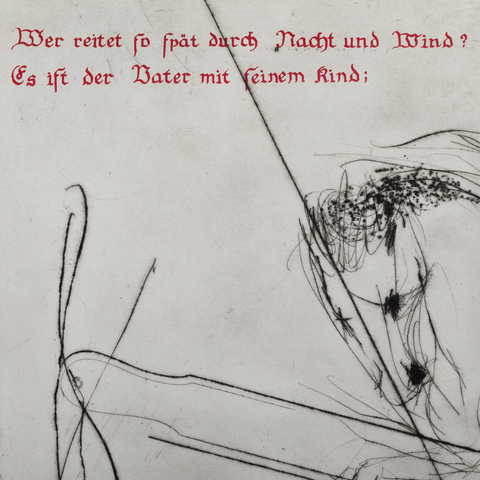 Wer reitet ſo ſpät durch Nacht und Wind?
Es iſt der Vater mit ſeinem Kind;